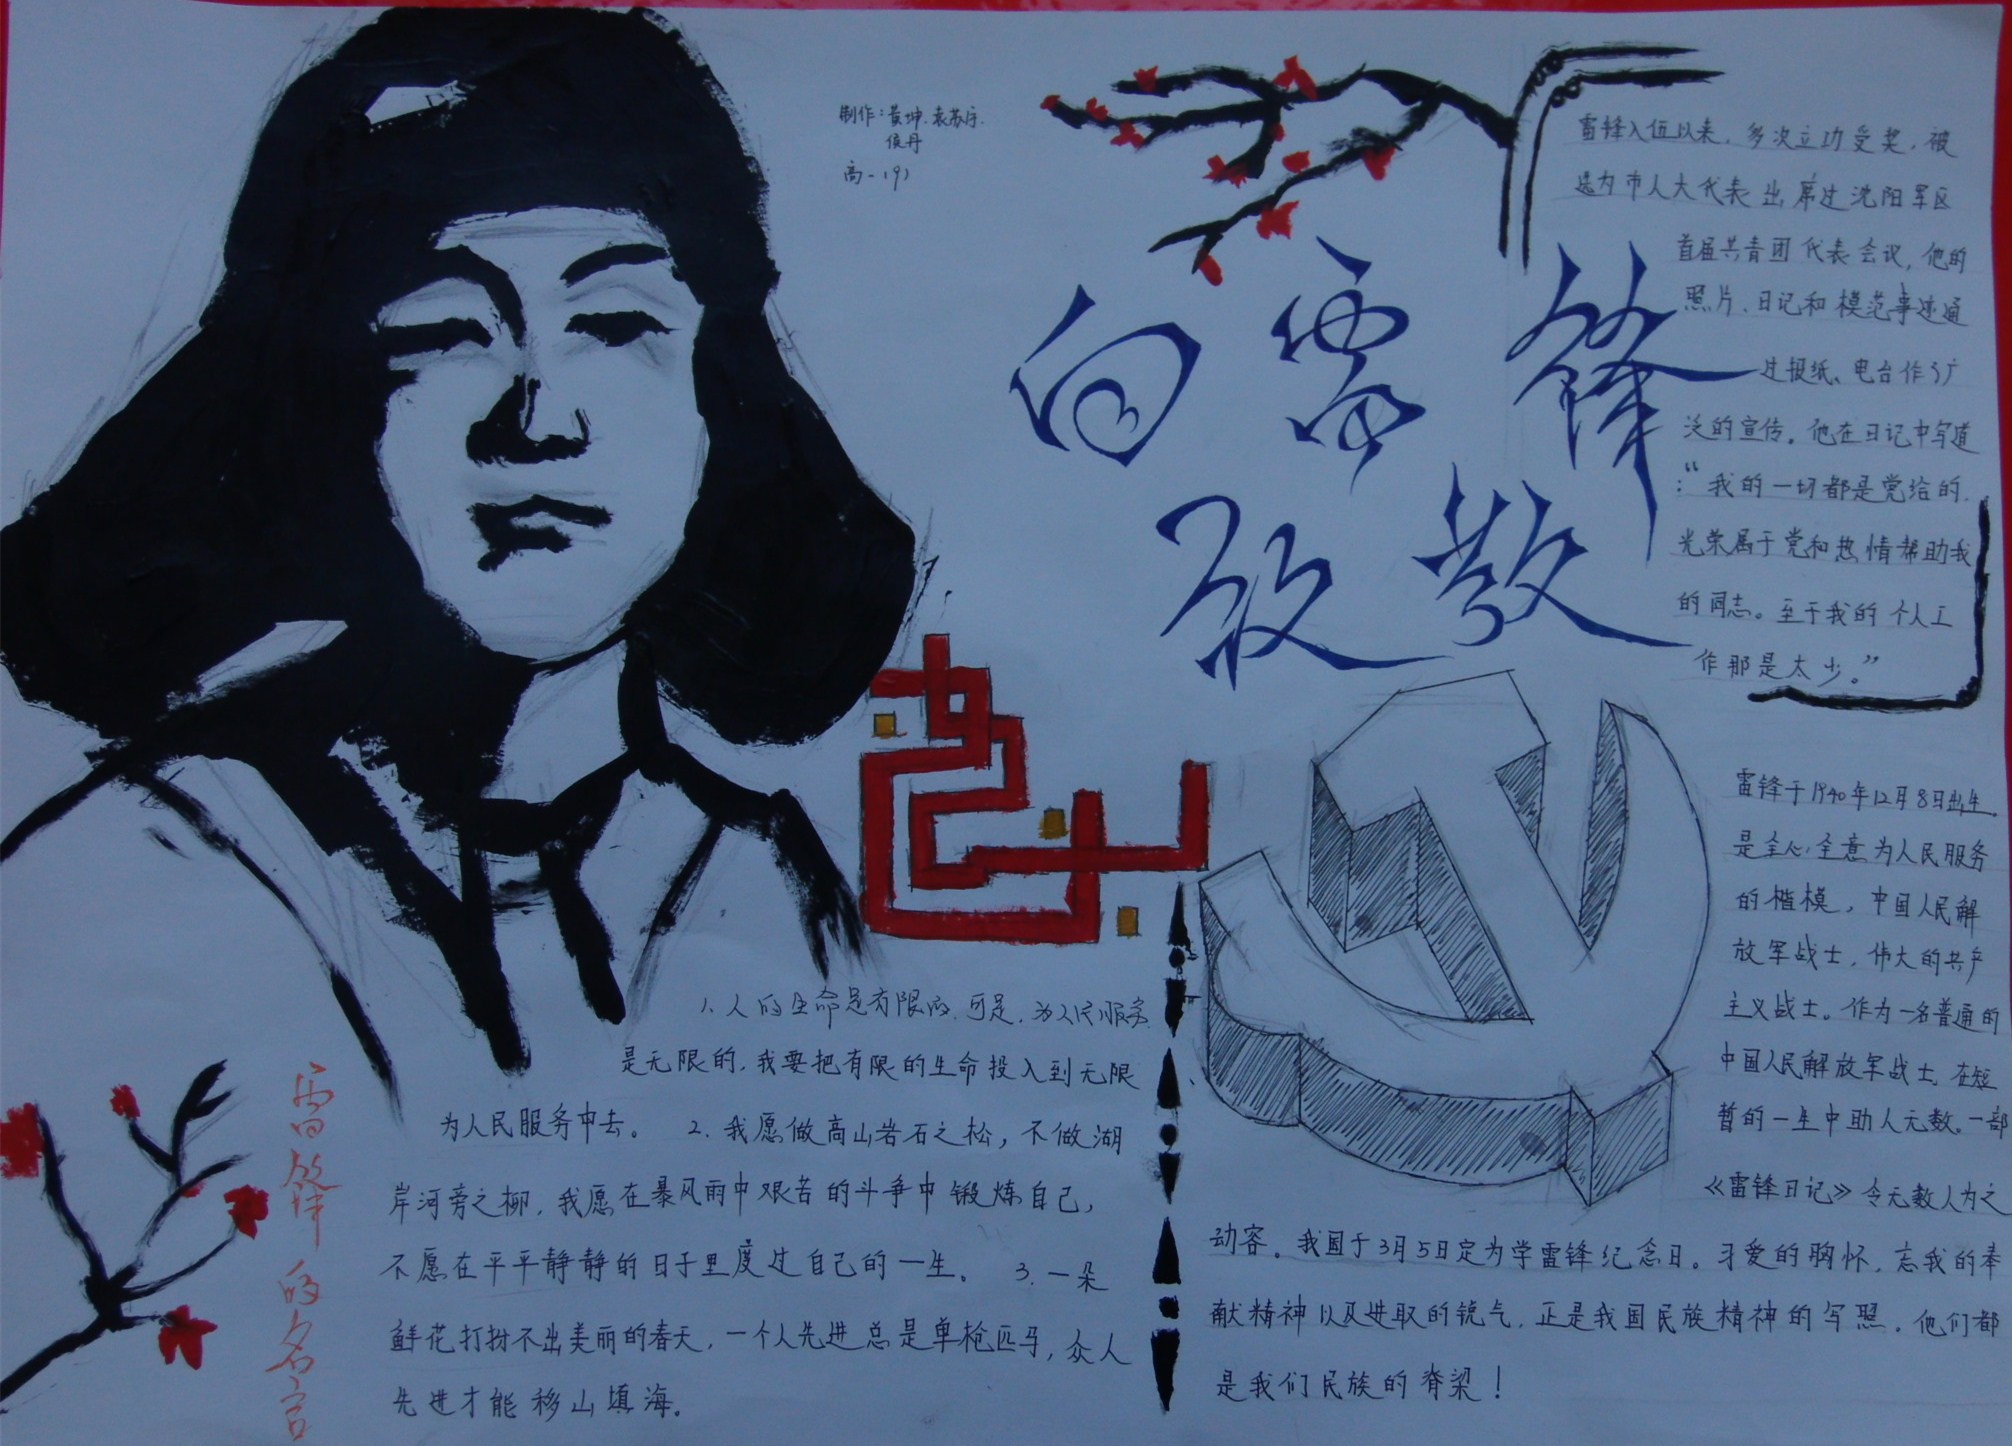 制作：黄坤.袁苏宁.
侯丹
高一(9)
向雷锋
致敬
雷锋入伍以来，多次立功受奖，被
选为市人大代表出席过沈阳军区
首届共青团代表会议，他的
照片、日记和模范事迹通
过报纸、电台作了广
泛的宣传。他在日记中写道
：“我的一切都是党给的，
光荣属于党和热情帮助我
的同志。至于我的个人工
作那是太少。”
雷锋于1940年12月8日出生。
是全心全意为人民服务
的楷模，中国人民解
放军战士，伟大的共产
主义战士。作为一名普通的
中国人民解放军战士，在短
暂的一生中助人无数。一部
《雷锋日记》令无数人为之
动容。我国于3月5日定为学雷锋纪念日。刁爱的胸怀，忘我的奉
献精神以及进取的锐气，正是我国民族精神的写照。他们都
是我们民族的脊梁！
雷锋的名言
1.人的生命是有限的，可是，为人民服务
是无限的，我要把有限的生命投入到无限
为人民服务中去。 2.我愿做高山岩石之松，不做湖
岸河旁之柳，我愿在暴风雨中艰苦的斗争中锻炼自己，
不愿在平平静静的日子里度过自己的一生。 3.一朵
鲜花打扮不出美丽的春天，一个人先进总是单枪匹马，众人
先进才能移山填海。